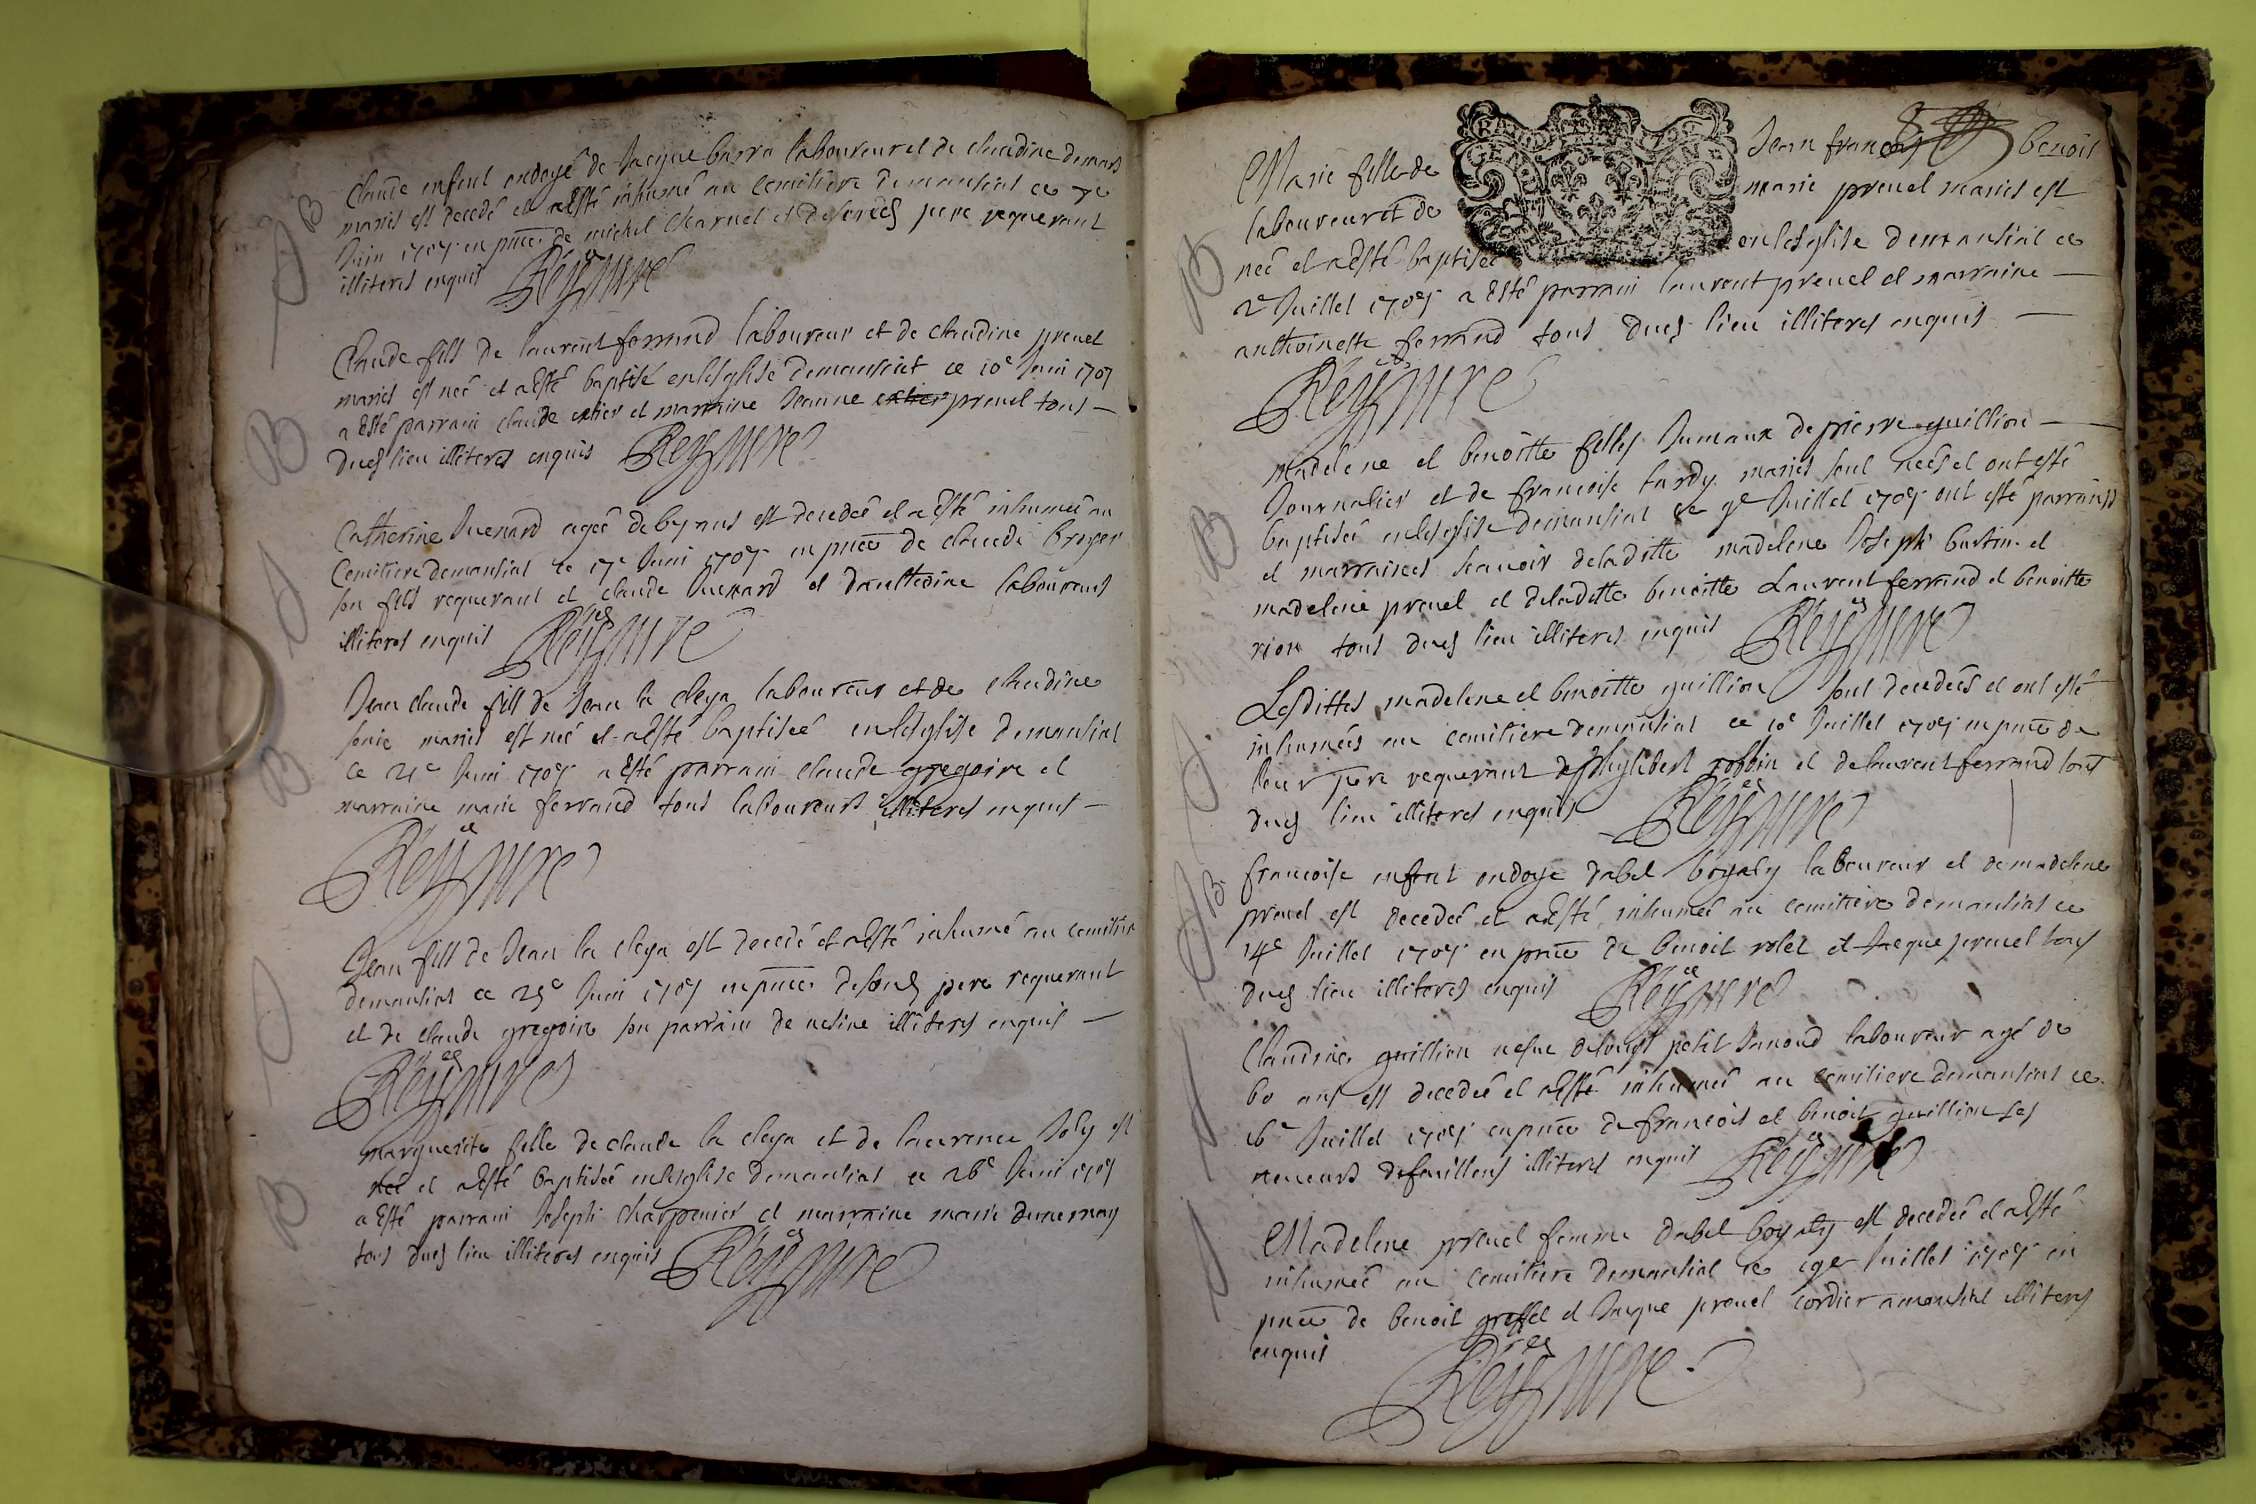 Claude enfent ondoyé de Jacque barra laboureur et de claudine demars
mariés est decedé et a Esté inhumé au cemitiere demansiat ce
Juin 1705 en pnce de michel Charnel et père requerant
illiteres enquis Reymure
Claude fils de laurent ferrand laboureur et de claudine prevel
mariés est neé et a Esté baptisé en lesglise demansiat ce 10e Juin 1705
a Esté parrain claude et marraine Jeanne prevel tous
dud lieu illiteres enquis Reymure
Catherine Juenard ageé de 65 ans est decedeé et a Esté inhumeé au
Cemitiere demansiat le 17e Juin 1705 en pnce de claude broyer
son fils requerant et claude Juenard et laboureurs
illiteres enquis Reymure
Jean claude fils de Jean la cleya laboureur et de claudine
mariés est neé et a Esté baptiseé en lesglise demansiat
ce 21e Juin 1705 a Esté parrain claude gregoire et
marraine marie ferrand tous laboureurs illiteres enquis
Reymure
Jean fils de Jean la cleya est decedé et a Esté inhumé au cemitiere
demansiat ce 25e Juin 1705 en pnce de père requerant
et de claude gregoire son parrain illiteres enquis
Reymure
Marguerite fille de claude la cleya et de laurence Joly est
neé et a Esté baptiseé en lesglise demansiat ce 26e Juin 1705
a Esté parrain Joseph charpenier et marraine marie
tous dud lieu illiteres enquis Reymure
8
Marie fille de Jean francoy benoit
laboureur et de marie prevel mariés est
neé et a Esté baptiseé en lesglise demansiat ce
2e Juillet 1705 a Esté parrain laurent prevel et marraine
anthoinette ferrand tous dud lieu illiteres enquis
Reymure
Madelene et benoitte filles Jumaux de pierre guillion
Journalier et de francoise tardy mariés sont neés et ont esté
baptiseé en lesglise demansiat ce 9e Juillet 1705 ont esté parrains
et marraines scavoir deladitte madelene Joseph et
madelene prevel et deladitte benoitte Laurent ferrand et benoitte
tous dud lieu illiteres enquis Reymure
Lesdittes madelene et benoitte guillion sont decedeés et ont esté
inhumeés au cemitiere demansiat ce 10e Juillet 1705 en pnce de
leur pere requerant de phylibert robbin et de laurent ferrand tous
dud lieu illiteres enquis Reymure
francoise enfent ondoye dabel boyaly laboureur et de madelene
prevel est decedeé et a Esté inhumeé au cemitiere demansiat ce
14e Juillet 1705 en pnce de benoit rolet et Jacque prevel tous
dud lieu illiteres enquis Reymure
Claudine guillion petit Janoud laboureur agé de
60 ans est decedeé et a Esté inhumeé au cemitiere demansiat ce
16e Juillet 1705 en pnce de francois et benoit guillion ses
neveurs illiteres enquis Reymure
Madelene prevel femme dabel boyaly est decedeé et a Esté
inhumeé au cemitiere demansiat ce 19e Juillet 1705 en
pnce de benoit et Jaque prevel cordier a mansiat illiteres
enquis
Reymure